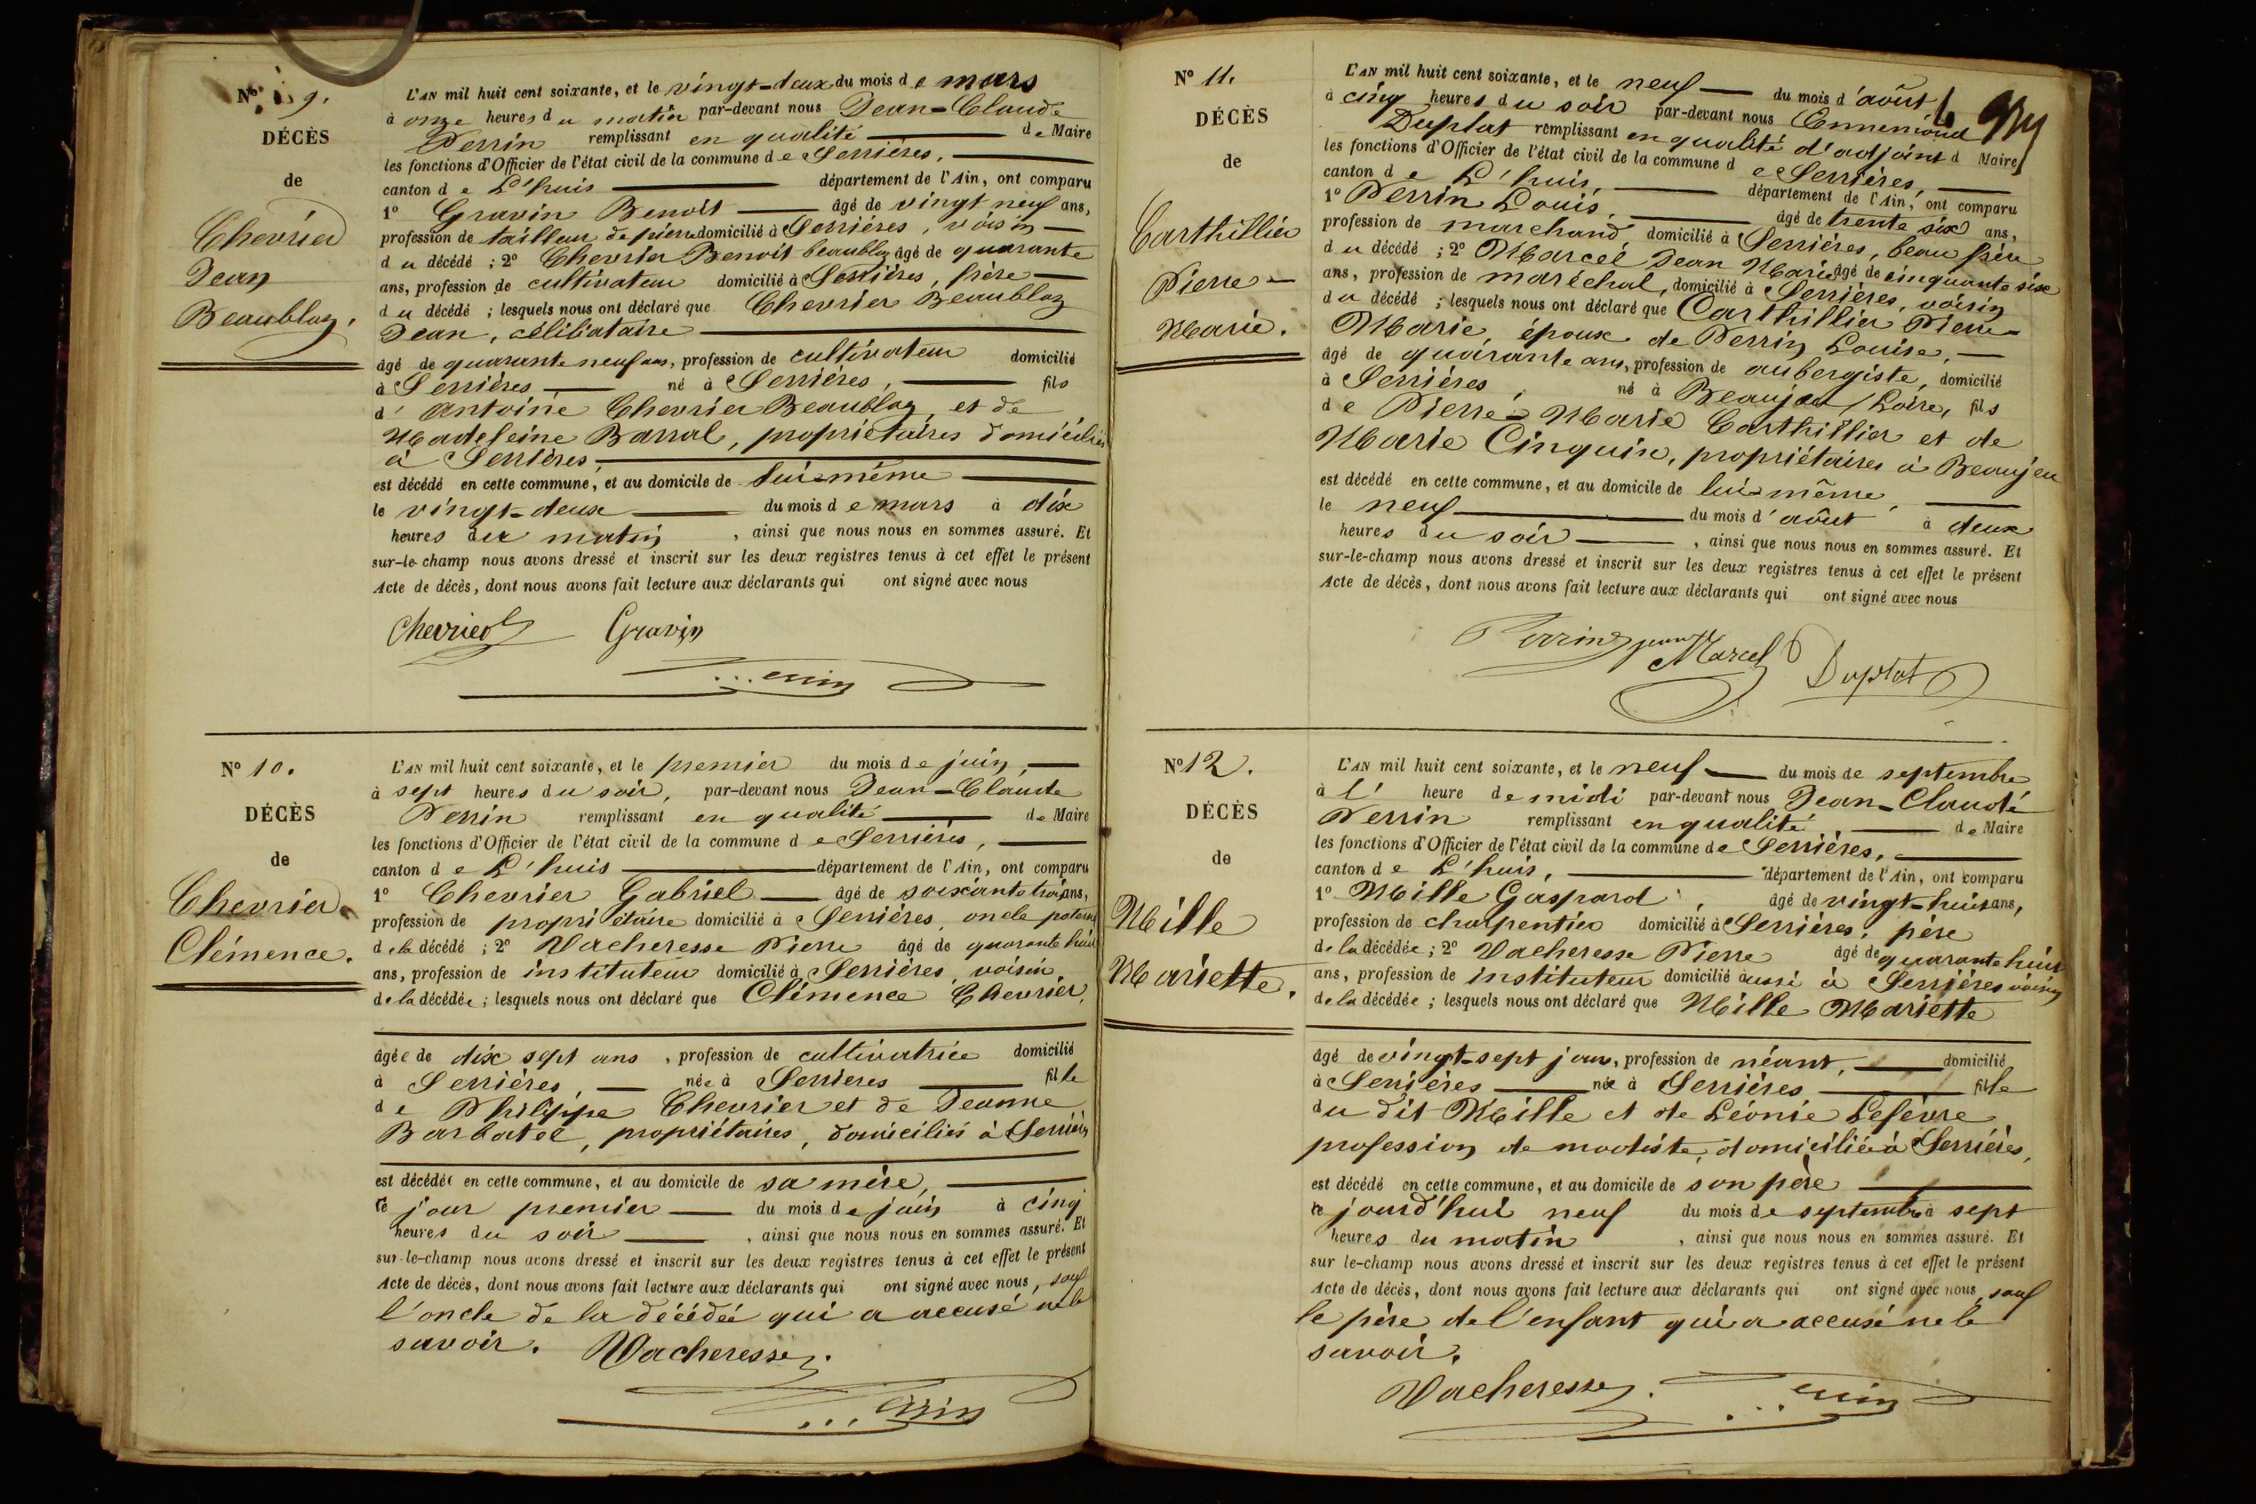 Nº 9.
DÉCÈS
de
Chevrier
Jean
Beaublez.
L'AN mil huit cent soixante, et le vingt-deux du mois de mars
à onze heures du matin par-devant nous Jean-Claude
Perrin remplissant en qualité de Maire
les fonctions d'Officier de l'état civil de la commune de Serrières,
canton de L'huis département de l'Ain, ont comparu
1º Gravin Benoit âgé de vingt neuf ans,
profession de tailleur de pierre domicilié à Serrières, voisin
du décédé ; 2º Chevrier Benoit beaublez âgé de quarante
ans, profession de cultivateur domicilié à Serrières, frère
du décédé ; lesquels nous ont déclaré que Chevrier Beaublez
Jean, célibataire
âgé de quarante neuf ans, profession de cultivateur domicilié
à Serrières né à Serrières, fils
d'Antoine Chevrier Beaublez, et de
Madeleine Barral, propriétaires domiciliés
à Serrières,
est décédé en cette commune, et au domicile de lui-même
le vingt-deux du mois de mars à dix
heures du matin, ainsi que nous nous en sommes assuré. Et
sur-le-champ nous avons dressé et inscrit sur les deux registres tenus à cet effet le présent
Acte de décès, dont nous avons fait lecture aux déclarants qui ont signé avec nous
Gravin
Nº 10.
DÉCÈS
de
Chevrier
Clémence.
L'AN mil huit cent soixante, et le premier du mois de juin,
à sept heures du soir, par-devant nous Jean-Claude
Perrin remplissant en qualité de Maire
les fonctions d'Officier de l'état civil de la commune de Serrières,
canton de L'huis département de l'Ain, ont comparu
1º Chevrier Gabriel âgé de soixante trois ans,
profession de propriétaire domicilié à Serrières, oncle paternel
de la décédé ; 2º Vacheresse Pierre âgé de quarante huit
ans, profession de instituteur domicilié à Serrières, voisin,
de la décédée ; lesquels nous ont déclaré que Clémence Chevrier,
âgée de dix sept ans, profession de cultivatrice domicilié
à Serrières, née à Serrieres fille
de Philippe Chevrier et de Jeanne
Barbatel, propriétaires, domiciliés à Serrières
est décédée en cette commune, et au domicile de sa mère,
ce jour premier du mois de juin à cinq
heures du soir, ainsi que nous nous en sommes assuré. Et
sur-le-champ nous avons dressé et inscrit sur les deux registres tenus à cet effet le présent
Acte de décès, dont nous avons fait lecture aux déclarants qui ont signé avec nous, sauf
l'oncle de la décédée qui a accusé ne le
savoir. Vacheresse.
Nº 11.
DÉCÈS
de
Carthillier
Pierre-
Marie.
L'AN mil huit cent soixante, et le neuf du mois d'août
à cinq heures du soir par-devant nous Ennemond
Duplat remplissant en qualité d'adjoint d Maire
les fonctions d'Officier de l'état civil de la commune de Serrières,
canton de L'huis, département de l'Ain, ont comparu
1º Perrin Louis, âgé de trente six ans,
profession de marchand domicilié à Serrières, beau frère
du décédé ; 2º Marcel Jean Marie âgé de cinquante six
ans, profession de maréchal, domicilié à Serrières, voisin
du décédé ; lesquels nous ont déclaré que Carthillier Pierre-
Marie, époux de Perrin Louise,
âgé de quarante ans, profession de aubergiste, domicilié
à Serrières, né à Beaujeu, Loire, fils
de Pierre-Marie Carthillier et de
Marie Cinquin, propriétaires à Beaujeu
est décédé en cette commune, et au domicile de lui-même,
le neuf du mois d'août à deux
heures du soir, ainsi que nous nous en sommes assuré. Et
sur-le-champ nous avons dressé et inscrit sur les deux registres tenus à cet effet le présent
Acte de décès, dont nous avons fait lecture aux déclarants qui ont signé avec nous
Perrin Marcel Duplat
Nº 12.
DÉCÈS
de
Mille
Mariette.
L'AN mil huit cent soixante, et le neuf du mois de septembre
à l' heure de midi par-devant nous Jean-Claude
Perrin remplissant en qualité de Maire
les fonctions d'Officier de l'état civil de la commune de Serrières,
canton de L'huis, département de l'Ain, ont comparu
1º Mille Gaspard, âgé de vingt-huit ans,
profession de charpentier domicilié à Serrières, père
de la décédée ; 2º Vacheresse Pierre âgé de quarante huit
ans, profession de instituteur domicilié aussi à Serrières voisin
de la décédée ; lesquels nous ont déclaré que Mille Mariette
âgé de vingt-sept jours, profession de néant, domicilié
à Serrières née à Serrières fille
du dit Mille et de Léonie Lefèvre
profession de modiste, domiciliée à Serrières,
est décédé en cette commune, et au domicile de son père
ce jourd'hui neuf du mois de septembre à sept
heures du matin, ainsi que nous nous en sommes assuré. Et
sur le-champ nous avons dressé et inscrit sur les deux registres tenus à cet effet le présent
Acte de décès, dont nous avons fait lecture aux déclarants qui ont signé avec nous, sauf
le père de l'enfant qui a accusé ne le
savoir.
Vacheresse.